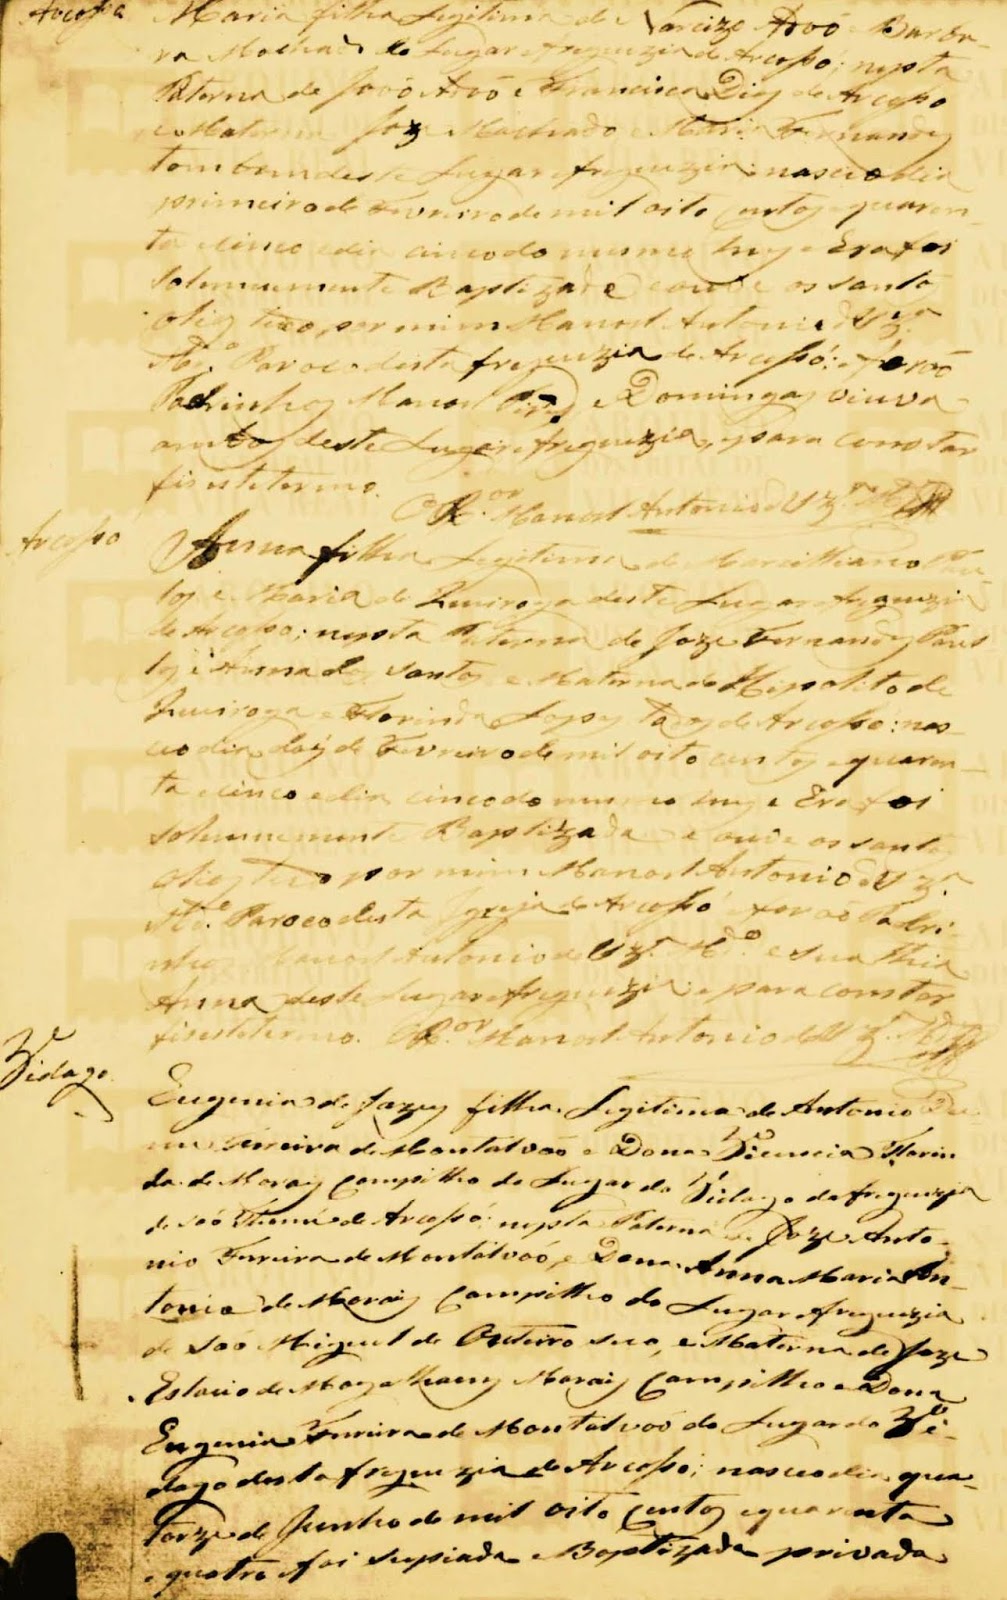 Arcossó
Maria filha Legitima de Narcizo Avó e Barba-
ra Machado do Lugar e freguezia de Arcosso; nepta
Paterna de João Avó e Francisca Diz de Arcosso
e Materna Joze Machado e Maria Fernandez
tombem deste Lugar e freguezia: nasceo dia
primeiro de Fevreiro de mil oito centos e quaren-
ta e cinco e dia cinco do mesmo mez e Era foi
solemnemente Baptizada e onde os santos
olios tudo por mim Manoel Antonio de
Paroco desta freguezia de Arcossó: e forão
Padrinhos Manoel e Domingas viuva
ambos deste Lugar e freguezia, e para constar
fis este termo.
O R.or Manoel Antonio de
Arcossó
Anna filha Legitima de Marcilliano
e Maria de Quiroga deste Lugar e freguezia
de Arcosso: nepta Paterna de Joze Fernandez
e Anna dos Santos e Materna de Hipolito de
Quiroga e Florinda Lopez todos de Arcosso: nas-
ceo dia dois de Fevreiro de mil oito centos e quaren-
ta e cinco e dia cinco do mesmo mez e Era foi
solemnemente Baptizada e onde os santos
olios tudo por mim Manoel Antonio de
Paroco desta Igreja de Arcossó forão Padri-
nhos Manoel Antonio de e sua thia
Anna deste Lugar e freguezia: e para constar
fis este termo. O R.or Manoel Antonio de
Vidago
Eugenia de Jazus filha Legitima de Antonio
Ferreira de Montalvaó e Dona Vicencia Florin
da de Morais Campilho do Lugar do Vidago da freguezia
de saó Thomé de Arcossó: nepta Paterna de Joze Anto-
nio Ferreira de Montalvaó, e Dona Anna Maria An-
tonia de Morais Campilho do Lugar e freguezia
de saó Miguel de Outeiro seco, e Materna de Joze
Estacio de Magalhaens Morais Campilho e Dona
Eugenia Ferreira de Montalvaó do Lugar do Vi-
dago desta freguezia de Arcosso; nasceo dia qua-
torze de Junho de mil oito centos e quarenta
e quatro foi e Baptizada privada